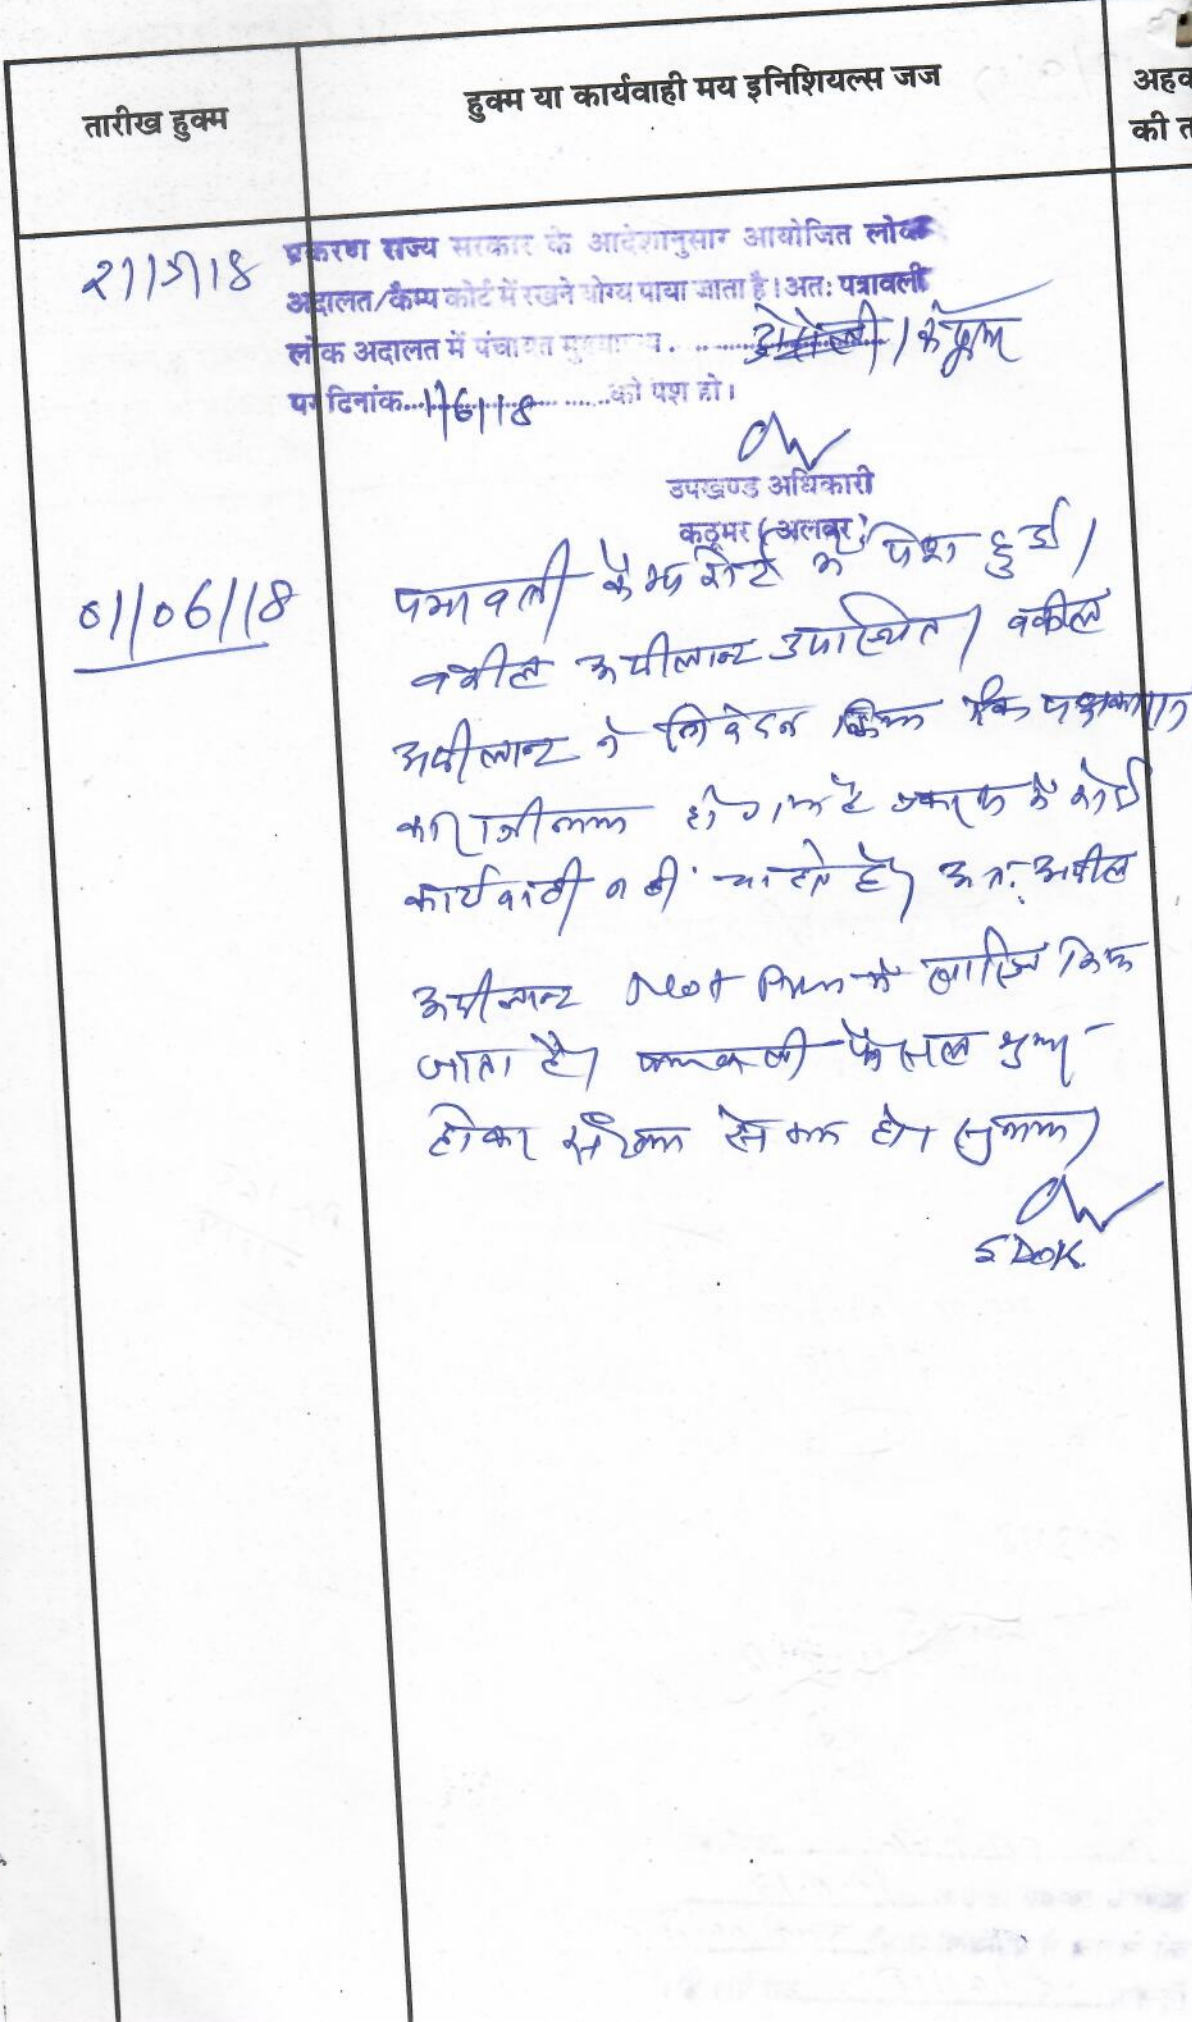 तारीख हुक्म
हुक्म या कार्यवाही मय इनिशियल्स जज
अहव
की त
प्रकरण राज्य सरकार के आदेशानुसार आयोजित लोक
21/5/18
अदालत/कैम्प कोर्ट में रखने योग्य पाया जाता है। अतः पत्रावली
लोक अदालत में पंचायत मुख्यालय
पर दिनांक 1/6/18 को पेश हो।
उपखण्ड अधिकारी
कठूमर (अलवर)
01/06/18
पत्रावली कैम्प कोर्ट में पेश हुई।
वकील अपीलान्ट उपस्थित। वकील
अपीलान्ट ने निवेदन किया कि पक्षकारान
का राजीनामा हो गया है प्रकरण में कोई
कार्यवाही नही चाहते है। अतः अपील
अपीलान्ट Not Press में खारिज किया
जाता है। पत्रावली फैसल शुमार
होकर
SDOK